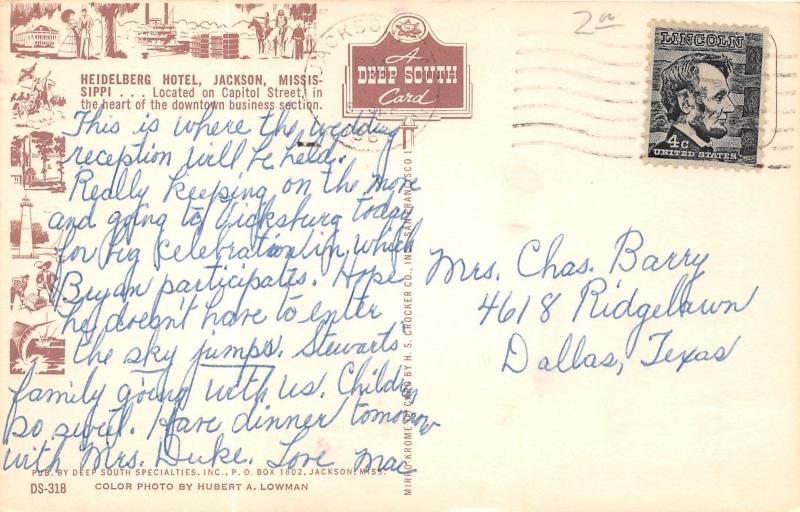 HEIDELBERG HOTEL, JACKSON, MISSIS-
SIPPI . . . Located on Capitol Street, in
the heart of the downtown business section.
This is where the wedding
reception will be held.
Really keeping on the move
and going to Vicksburg today
for big celebration in which
Bryan participates. Hope
he doesn't have to enter
the sky jumps. Stewarts
family going with us. Children
so sweet. Have dinner tomorrow
with Mrs. Duke. Love Mac
PUB. BY DEEP SOUTH SPECIALTIES, INC., P. O. BOX 1602, JACKSON, MISS.
DS-318 COLOR PHOTO BY HUBERT A. LOWMAN
A
DEEP SOUTH
Card
MIRRO-KROME CARD BY H. S. CROCKER CO., INC. SAN FRANCISCO
JACKSON
2.00
LINCOLN
4c
UNITED STATES
Mrs. Chas. Barry
4618 Ridgelawn
Dallas, Texas